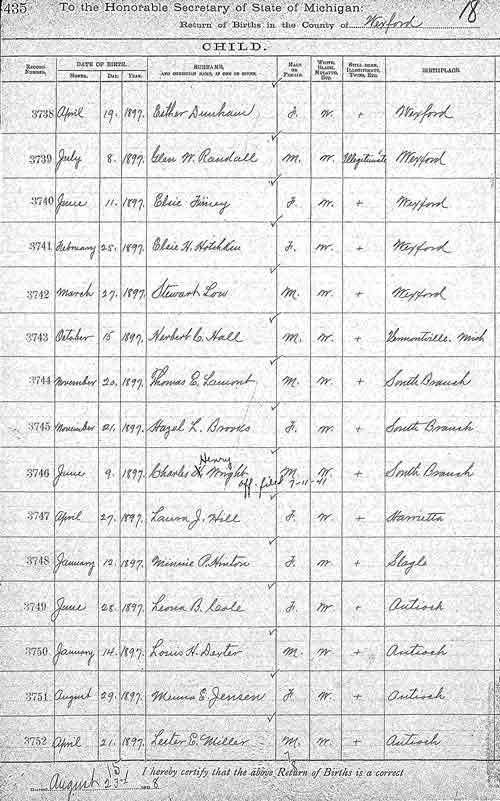 435 To the Honorable Secretary of State of Michigan: 18
Return of Births in the County of Wexford
CHILD.
RECORD NUMBER. DATE OF BIRTH. SURNAME, AND CHRISTIAN NAME, IF ONE IS GIVEN. MALE OR FEMALE. WHITE, BLACK, MULATTO, ETC. STILL BORN, ILLEGITIMATE, TWINS, ETC. BIRTHPLACE.
MONTH. DAY. YEAR.
3738 April 19. 1897. Esther Dunham F. W. + Wexford
3739 July 8. 1897. Glen W. Randall M. W. Illegitimate Wexford
3740 June 11. 1897. Elsie Finey F. W. + Wexford
3741 February 25. 1897. Elsie H. Hotchkin F. W. + Wexford
3742 March 27. 1897. Stewart Low M. W. + Wexford
3743 October 15 1897. Herbert C. Hall M. W. + Vermontville. Mich
3744 November 20. 1897. Thomas E. Lamont M. W. + South Branch
3745 November 21. 1897. Hazel L. Brooks F. W. + South Branch
Henry
3746 June 9. 1897. Charles H. Wright M. W. + South Branch
off. filed 7-11-41
3747 April 27. 1897. Laura J. Hill F. W. + Harrietta
3748 January 12. 1897. Minnie P. Hinton F. W. + Slagle
3749 June 28. 1897. Leona B. Cole F. W. + Antioch
3750 January 14. 1897. Louis H. Dexter M. W. + Antioch
3751 August 29. 1897. Menna E. Jensen F. W. + Antioch
3752 April 21. 1897. Lester E. Miller M. W. + Antioch
I hereby certify that the above Return of Births is a correct
Dated August 23rd 8